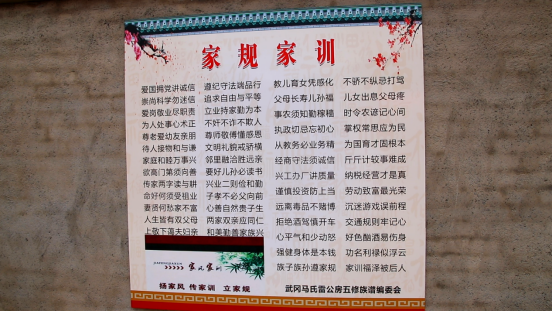 家规家训
爱国拥党讲诚信 遵纪守法端品行 教儿育女凭感化 不骄不纵忌打骂
崇尚科学勿迷信 追求自由与平等 父母长寿儿孙福 儿女出息父母疼
爱岗敬业尽职责 立业持家勤为本 事农须知勤稼穑 时令农谚记心间
为人处事心术正 不奸不诈不欺人 执政切忌忘初心 掌权常思应为民
尊老爱幼亲亲朋 尊师敬傅懂感恩 从教务必业务精 为国育才固根本
待人接物和与谦 文明礼貌戒骄横 经商守法须诚信 斤斤计较事难成
家庭和睦万事兴 邻里融洽胜远亲 兴工办厂讲质量 纳税经营才是真
欲高门第须向善 要好儿孙必读书 谨慎投资防上当 劳动致富最光荣
传家两字读与耕 兴业二则俭和勤 远离毒品不赌博 沉迷游戏误前程
命好何须受祖业 子孝不必父向前 拒绝酒驾慎开车 交通规则牢记心
妻贤何愁家不富 心善自然贵子生 心平气和少动怒 好色酗酒易伤身
人生皆有双父母 两家双亲应同仁 强健身体是本钱 功名利禄似浮云
上敬下蔼夫妇亲 和美勤善家族兴 族子族孙遵家规 家训福泽被后人
家风家训
扬家风 传家训 立家规
武冈马氏雷公房五修族谱编委会